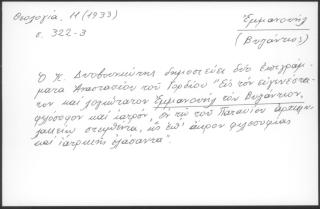 Θεολογία, 11 (1933)
σ. 322-3
Ἐμμανουήλ
(Βυζάντιος)
Ὁ Κ. Δυοβουνιώτης δημοσιεύει δύο ἐπιγράμ-
ματα Ἀναστασίου τοῦ Γορδίου "Εἰς τὸν εὐγενέστα-
τον καὶ λογιώτατον Ἐμμανουήλ τὸν Βυζάντιον,
φιλόσοφον καὶ ἰατρόν, ἐν τῷ τοῦ Παταυΐου
στεφθέντα, ὡς ἐπ' ἄκρον φιλοσοφίας
καὶ ἰατρικῆς ἐλάσαντα".